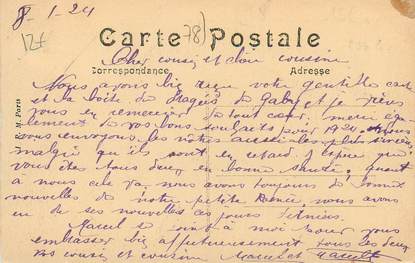 8-1-24
12f
78)
Carte Postale
Cher cousin et chère cousine
Correspondance Adresse
M. Paris
Nous avons bien reçu votre gentille carte
et la boîte de Dragées de Gaby et je viens
vous en remercier de tout cœur, merci éga-
lement de vos bons souhaits pour 1924. Nous
vous envoyons les nôtres aussi les plus sincères
malgré qu'ils sont en retard. J'espère que
vous êtes tous deux en bonne santé; quant
à nous cela va, nous avons toujours de bonnes
nouvelles de notre petite Denise, nous avons
eu de ses nouvelles ces jours derniers.
Marcel se joint à moi pour vous
embrasser bien affectueusement tous les deux
Vos cousin et cousine Marcel et